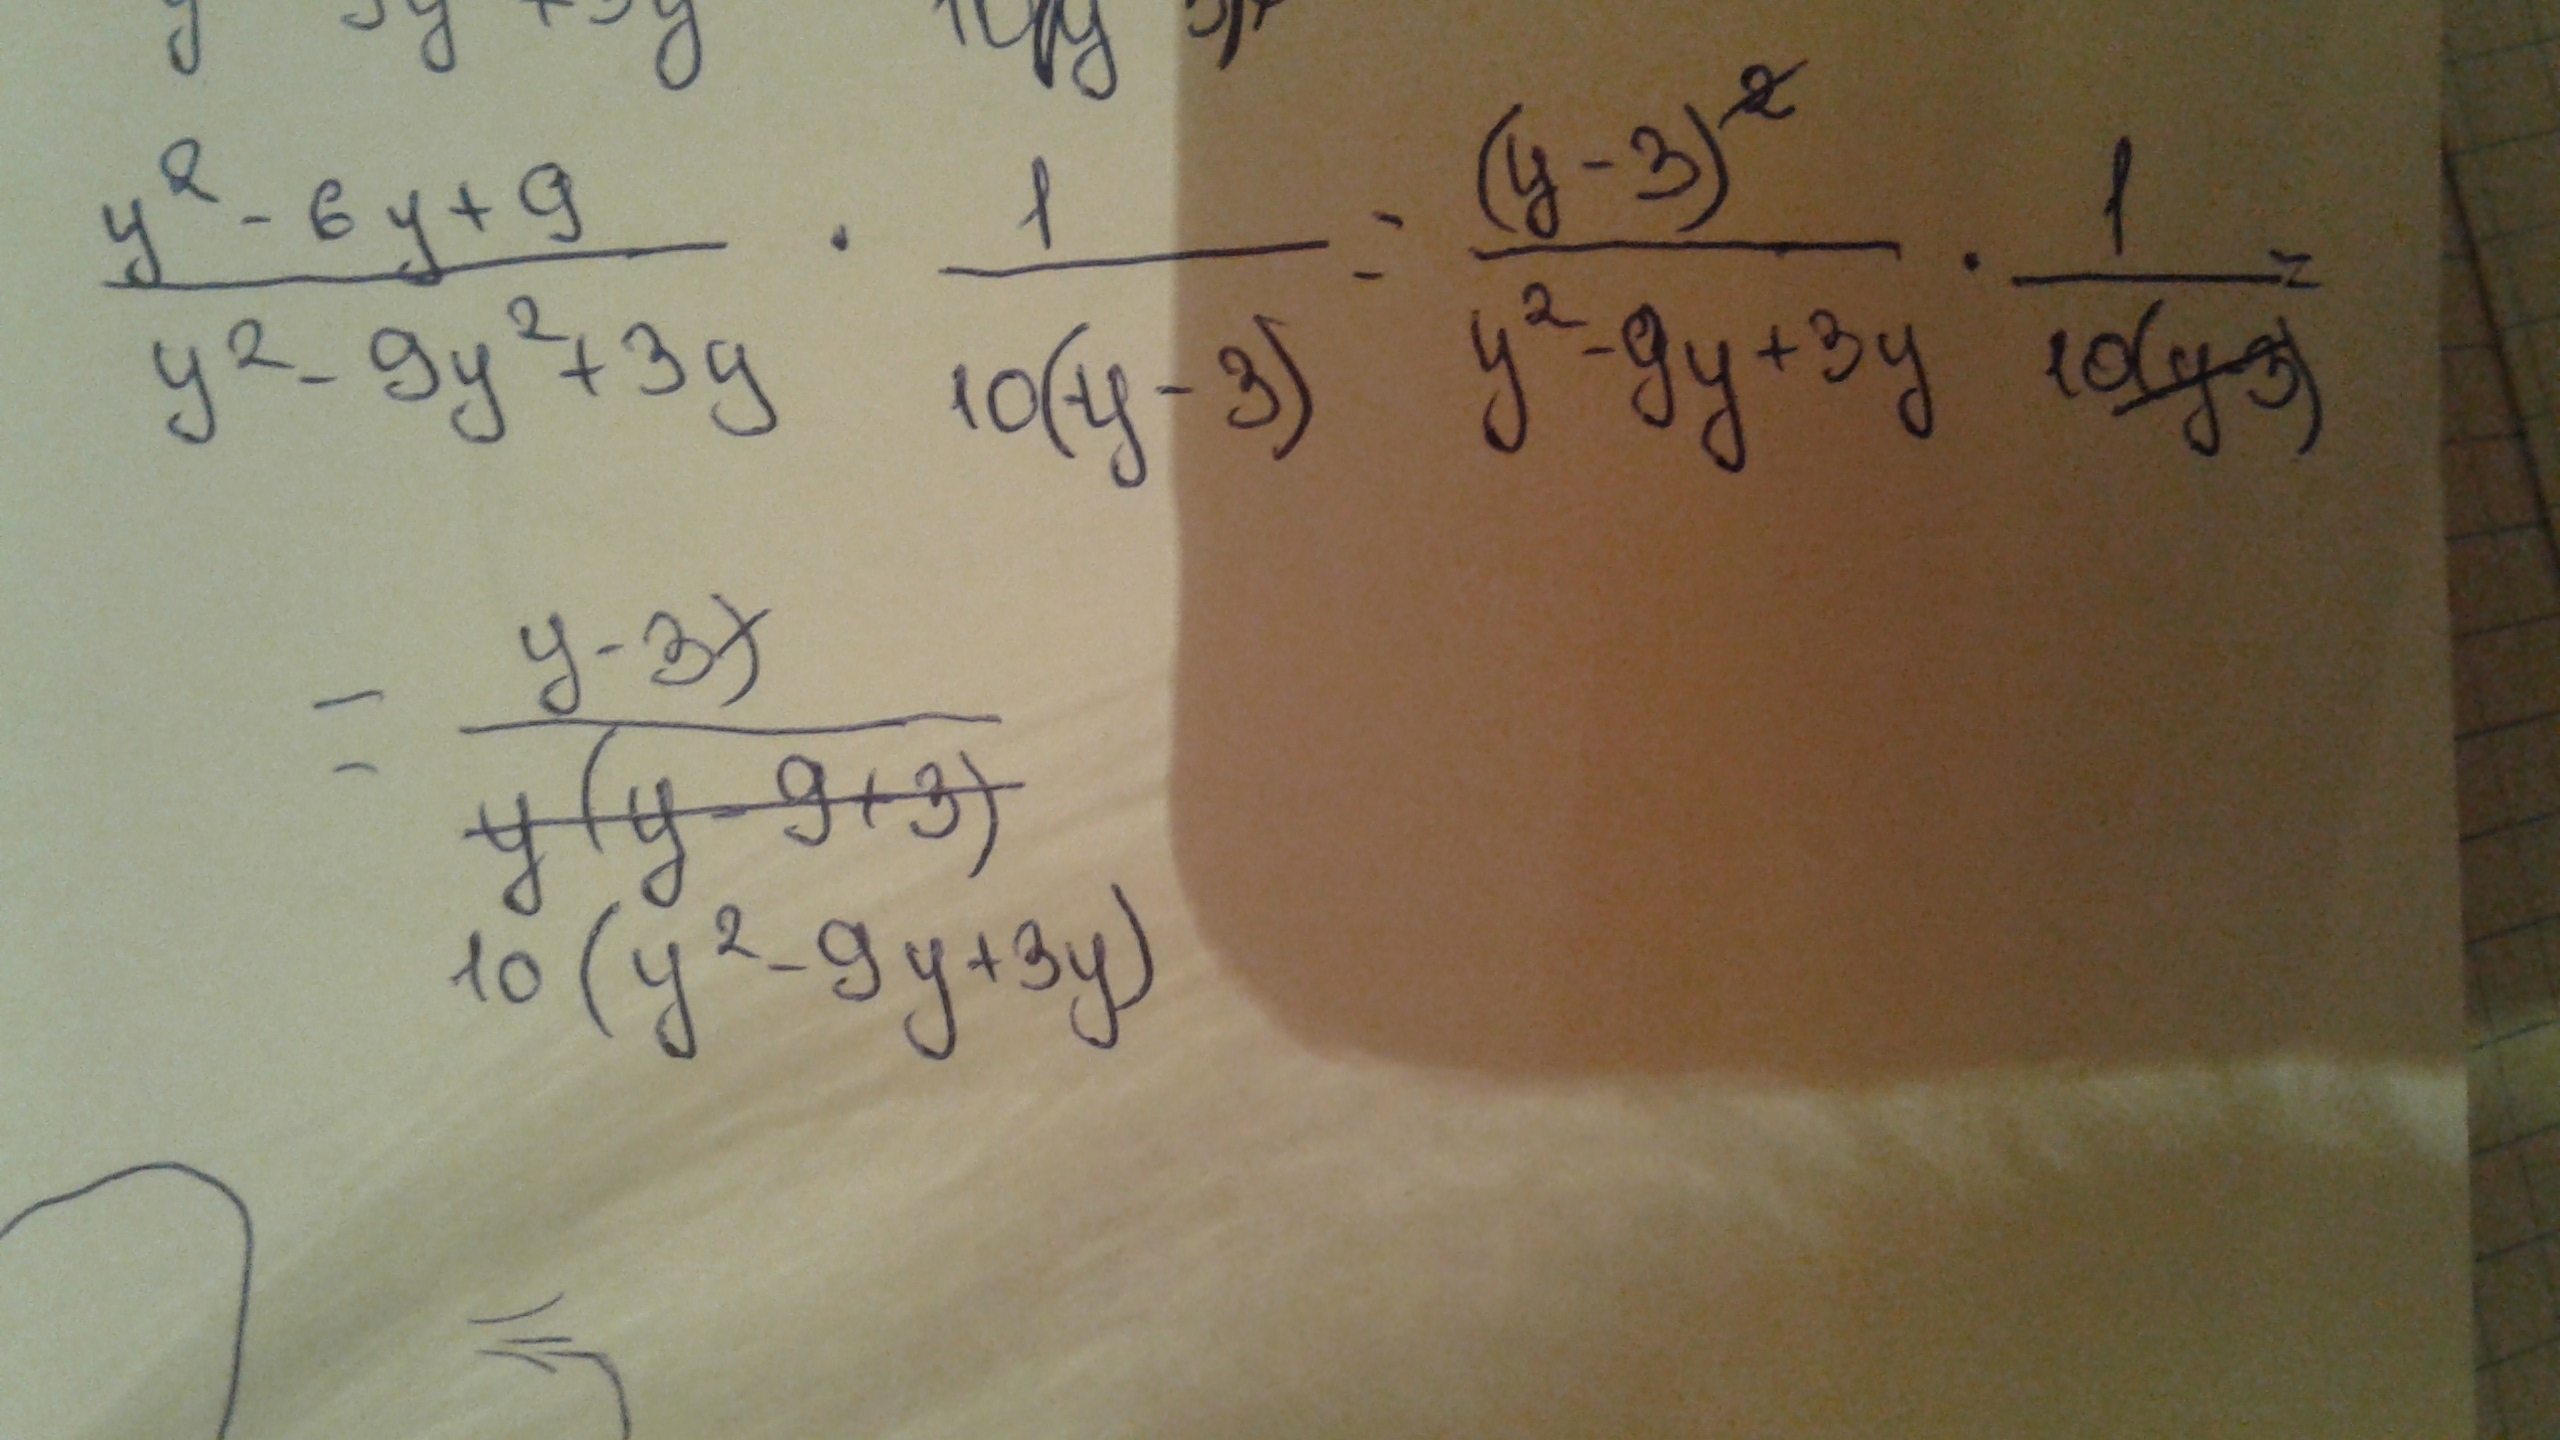 y² - 6y + 9 / y² - 9y² + 3y · 1 / 10(y - 3) = (y - 3)² / y² - 9y + 3y · 1 / 10(y-3) =
= y - 3) / y(y - 9 + 3)
10(y² - 9y + 3y)